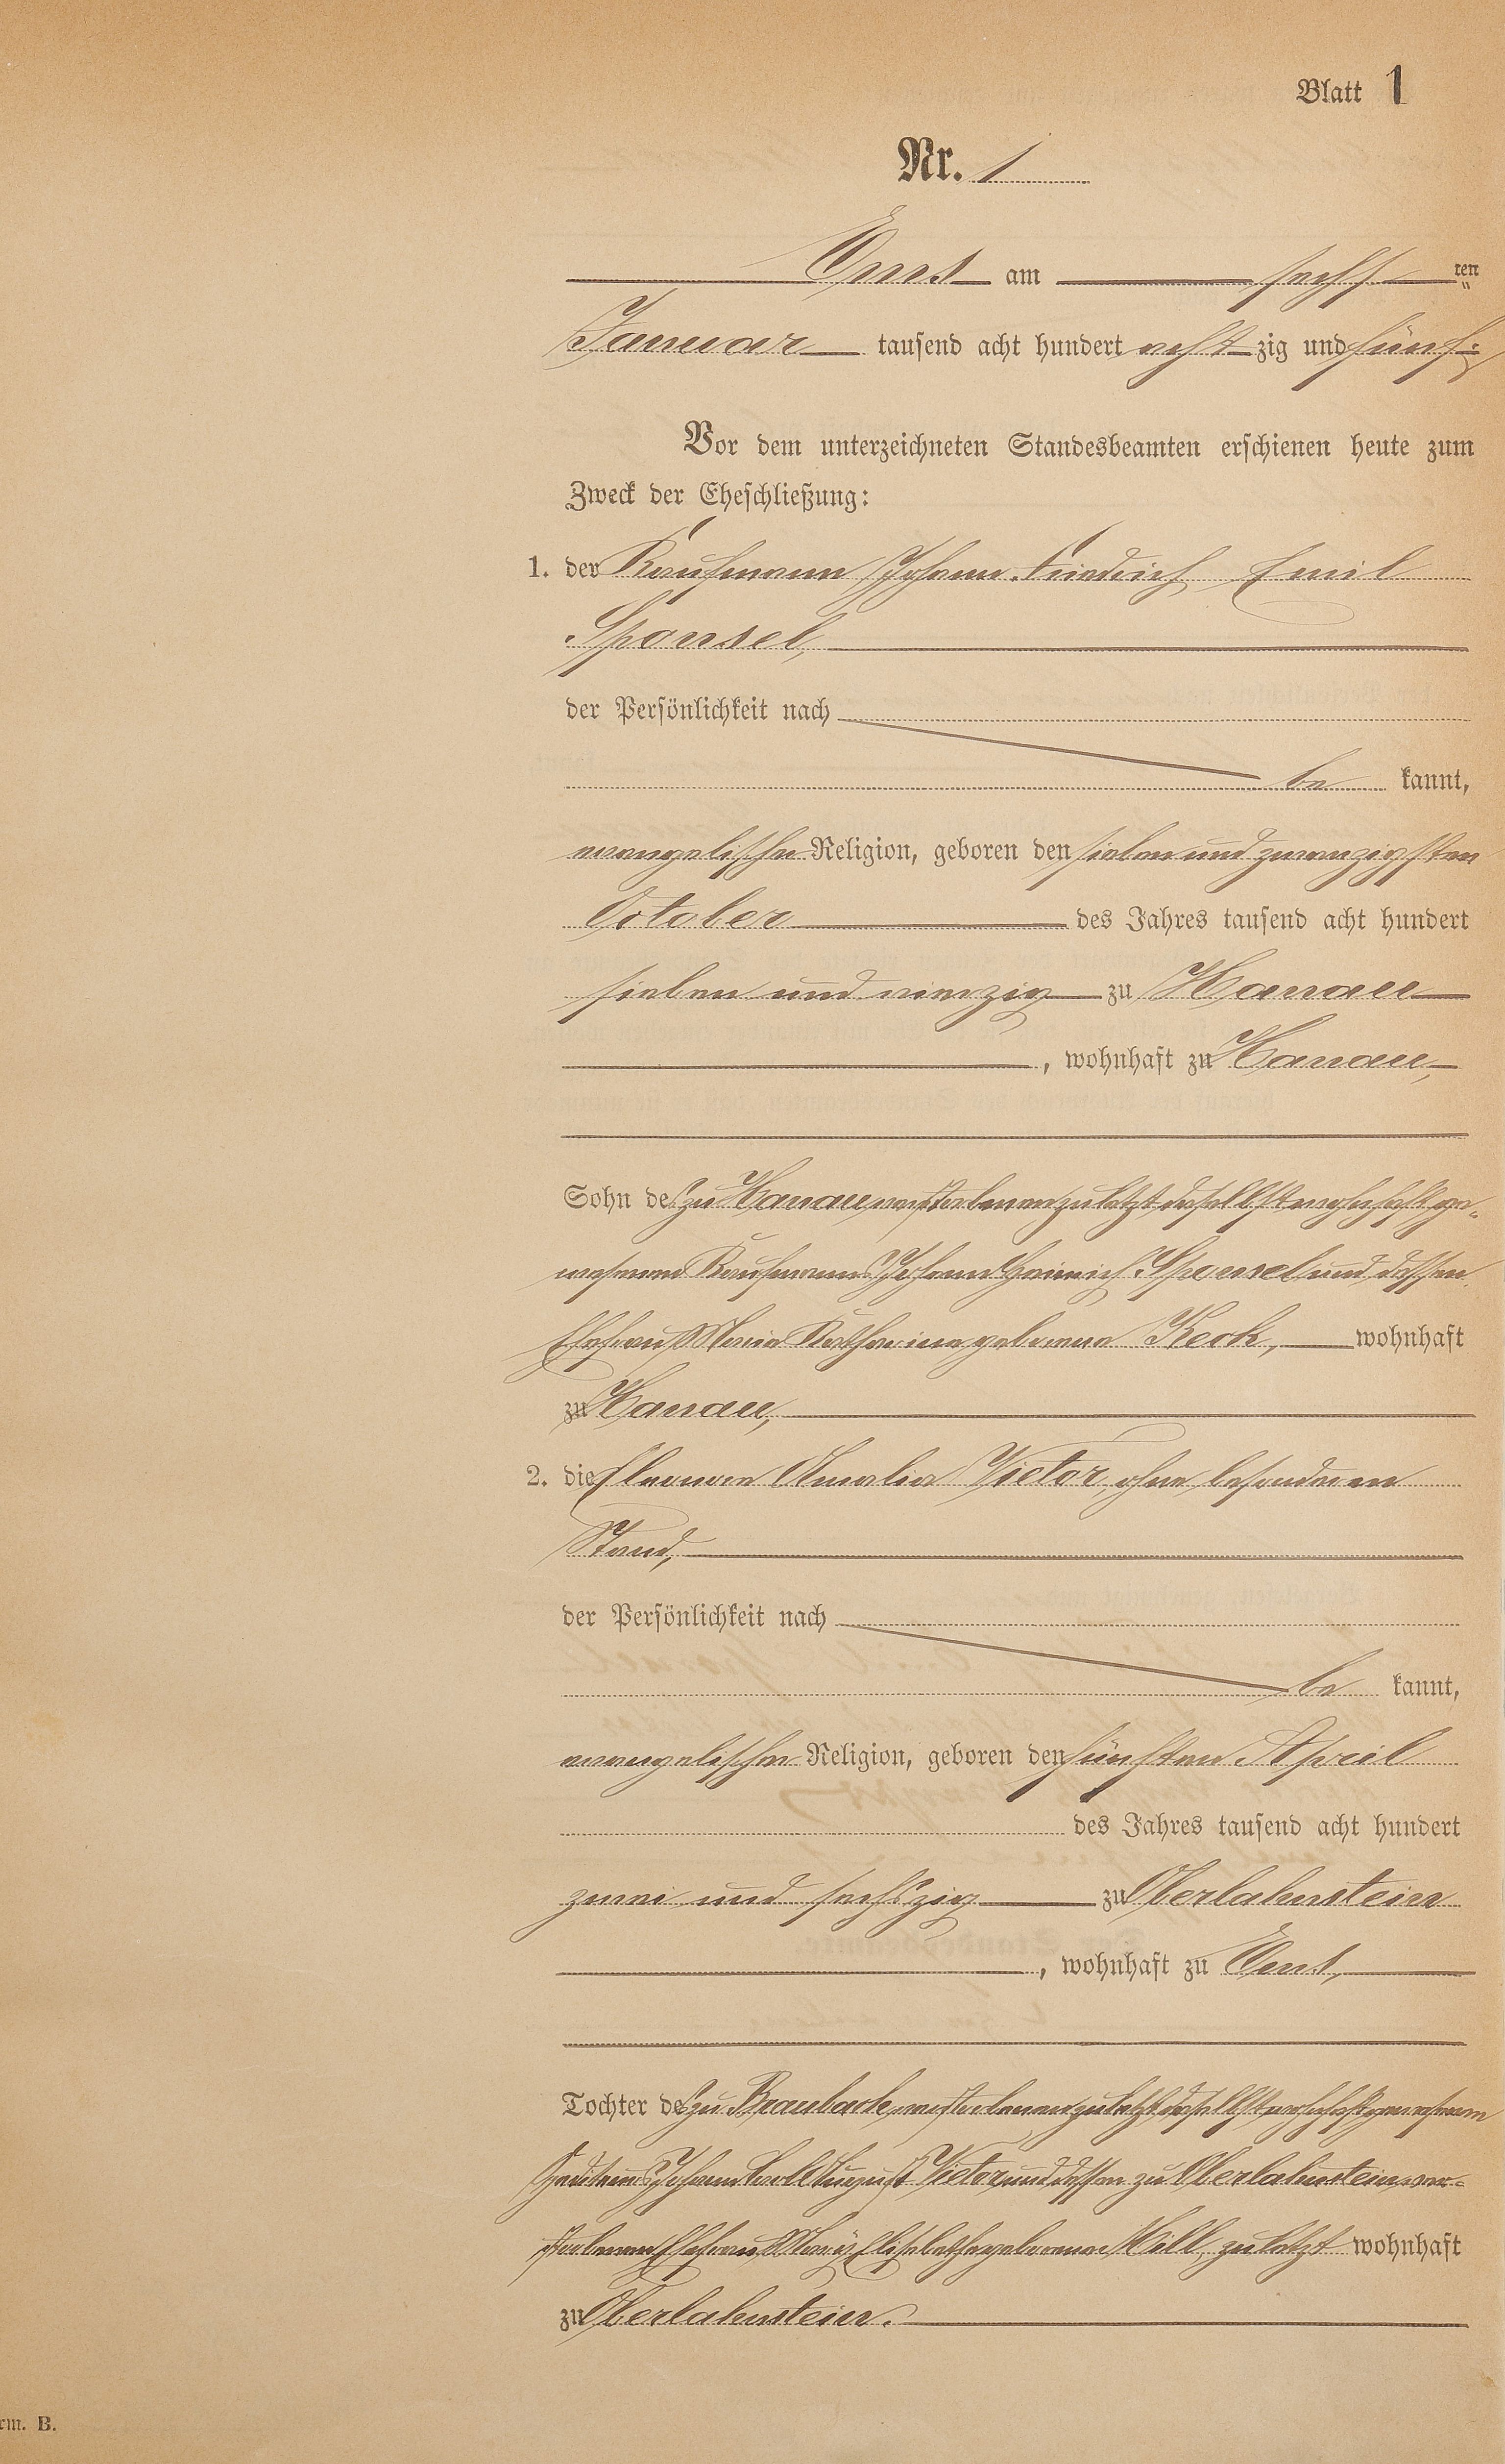 Blatt 1
Nr. 1
Ems am sechsten
Januar tausend acht hundert achtzig und fünf.
Vor dem unterzeichneten Standesbeamten erschienen heute zum
Zweck der Eheschließung:
1. der Kaufmann Johann Friedrich Emil
Sponsel,
der Persönlichkeit nach
be kannt,
evangelischer Religion, geboren den sieben und zwanzigsten
October des Jahres tausend acht hundert
sieben und vierzig zu Hanau
, wohnhaft zu Hanau,
Sohn des zu Hanau verstorbenen zuletzt daselbst wohnhaft ge-
wesenen Kaufmanns Johann Heinrich Sponsel und dessen
Ehefrau Maria Katharina geborene Keck, wohnhaft
zu Hanau,
2. die Eleonore Amalia Vietor, ohne besonderen
Stand,
der Persönlichkeit nach
be kannt,
evangelischer Religion, geboren den fünften April
des Jahres tausend acht hundert
zwei und sechszig zu Oberlahnstein
, wohnhaft zu Ems,
Tochter des zu Braubach verstorbenen zuletzt daselbst wohnhaft gewesenen
Johann Carl August Vietor und dessen zu Oberlahnstein ver-
storbenen Ehefrau Elisabetha geborene Mill, zuletzt wohnhaft
zu Oberlahnstein.
rm. B.